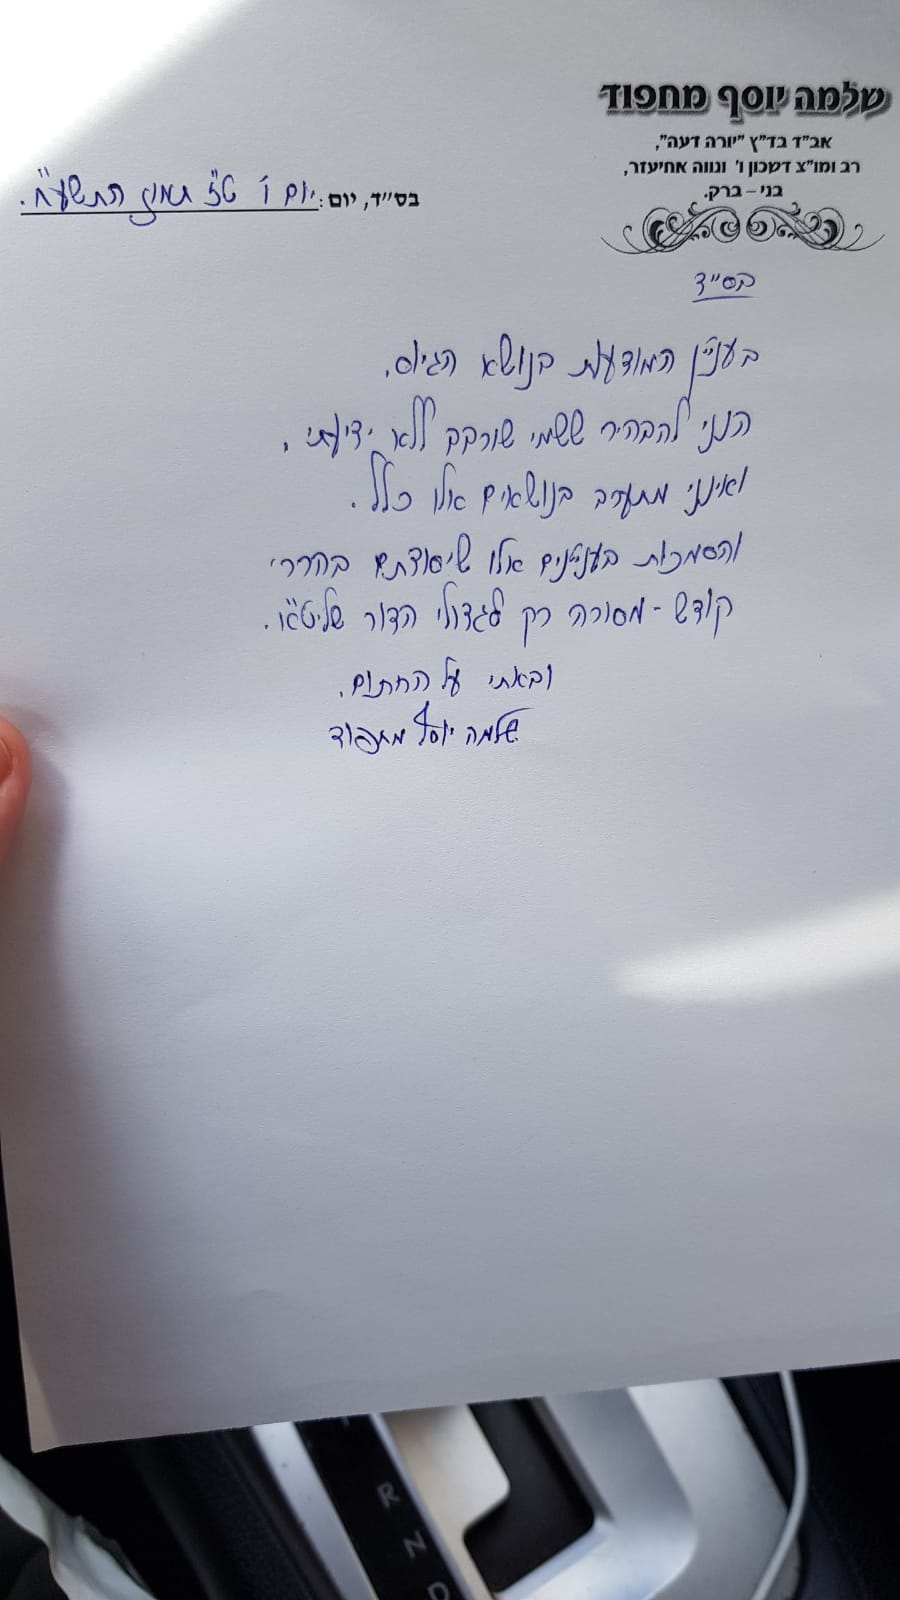 שלמה יוסף מחפוד
אב"ד בד"ץ "יורה דעה",
רב ומו"צ דשכון ו' ונווה אחיעזר,
בני – ברק.
בס"ד, יום: יום ו' ט"ז תמוז התשע"ח.
בס"ד
בענין המודעות בנושא הגיוס.
הנני להבהיר ששמי שורבב ללא ידיעתי,
ואינני מתערב בנושאים אלו כלל.
והסמכות בעניינים אלו שיסודתם בהררי
קודש - מסורה רק לגדולי הדור שליט"א.
ובאתי על החתום,
שלמה יוסף מחפוד
R
N
D